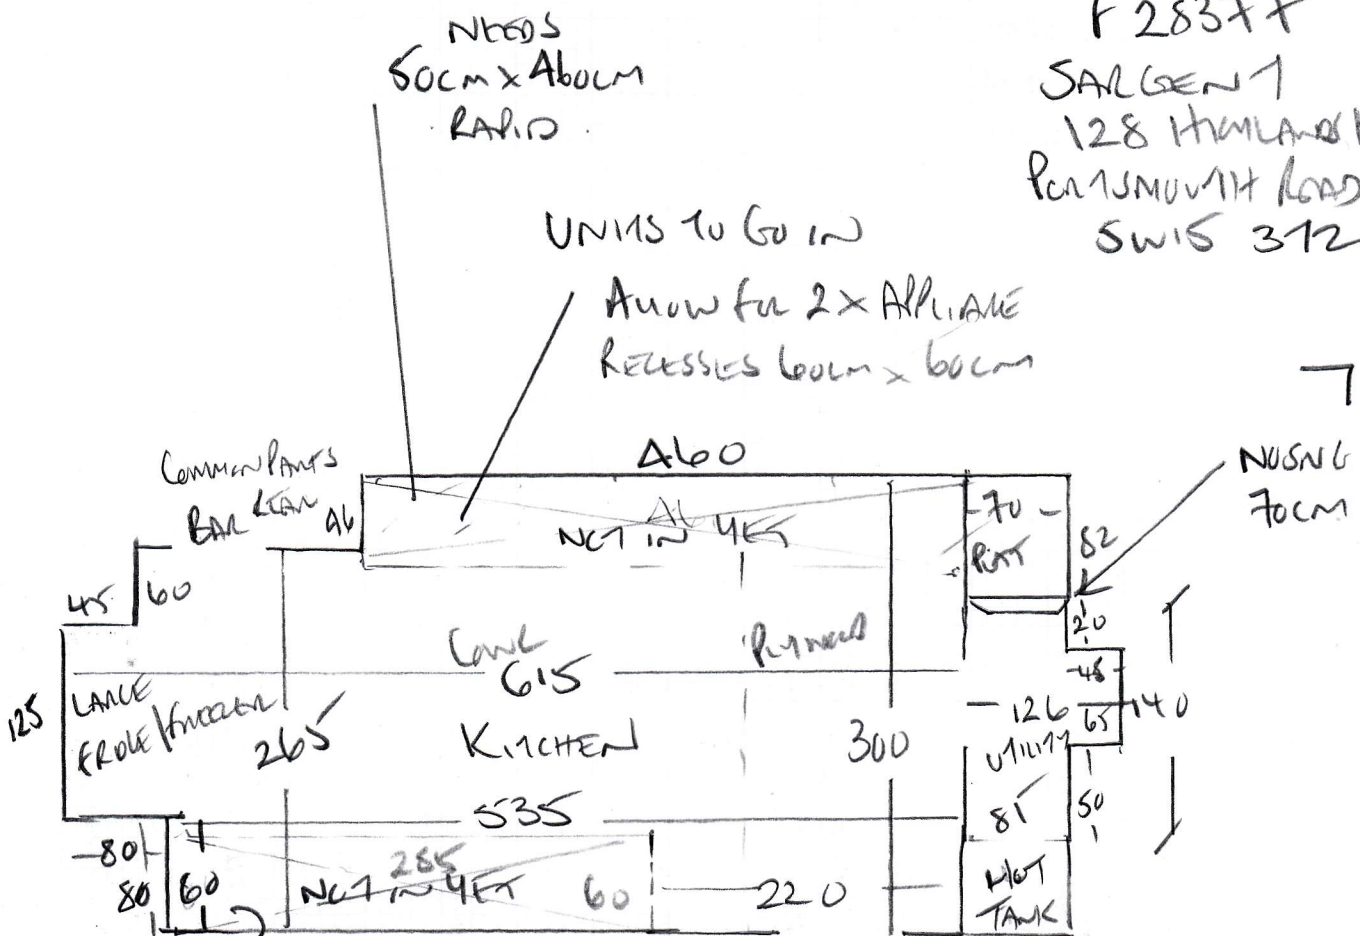 NEEDS
50cm x 460cm
RAPID
F 283++
SARGENT
128 HIGHLANDS H
PORTSMOUTH ROAD
SW15
UNITS TO GO IN
ALLOW FOR 2 X APPLIANCE
RECESSES 60cm x 60cm
COMMON PARTS
BAR LEAN
46
460
NOSNG
70cm
NOT IN YET
70
PLATT
82
45
60
20
COWL
PLYWOOD
615
48
LARGE
FRIDGE/FREEZER
125
265
KITCHEN
300
126
65
140
UTILITY
535
81
50
80
285
NOT IN YET
80
60
60
220
HOT
TANK